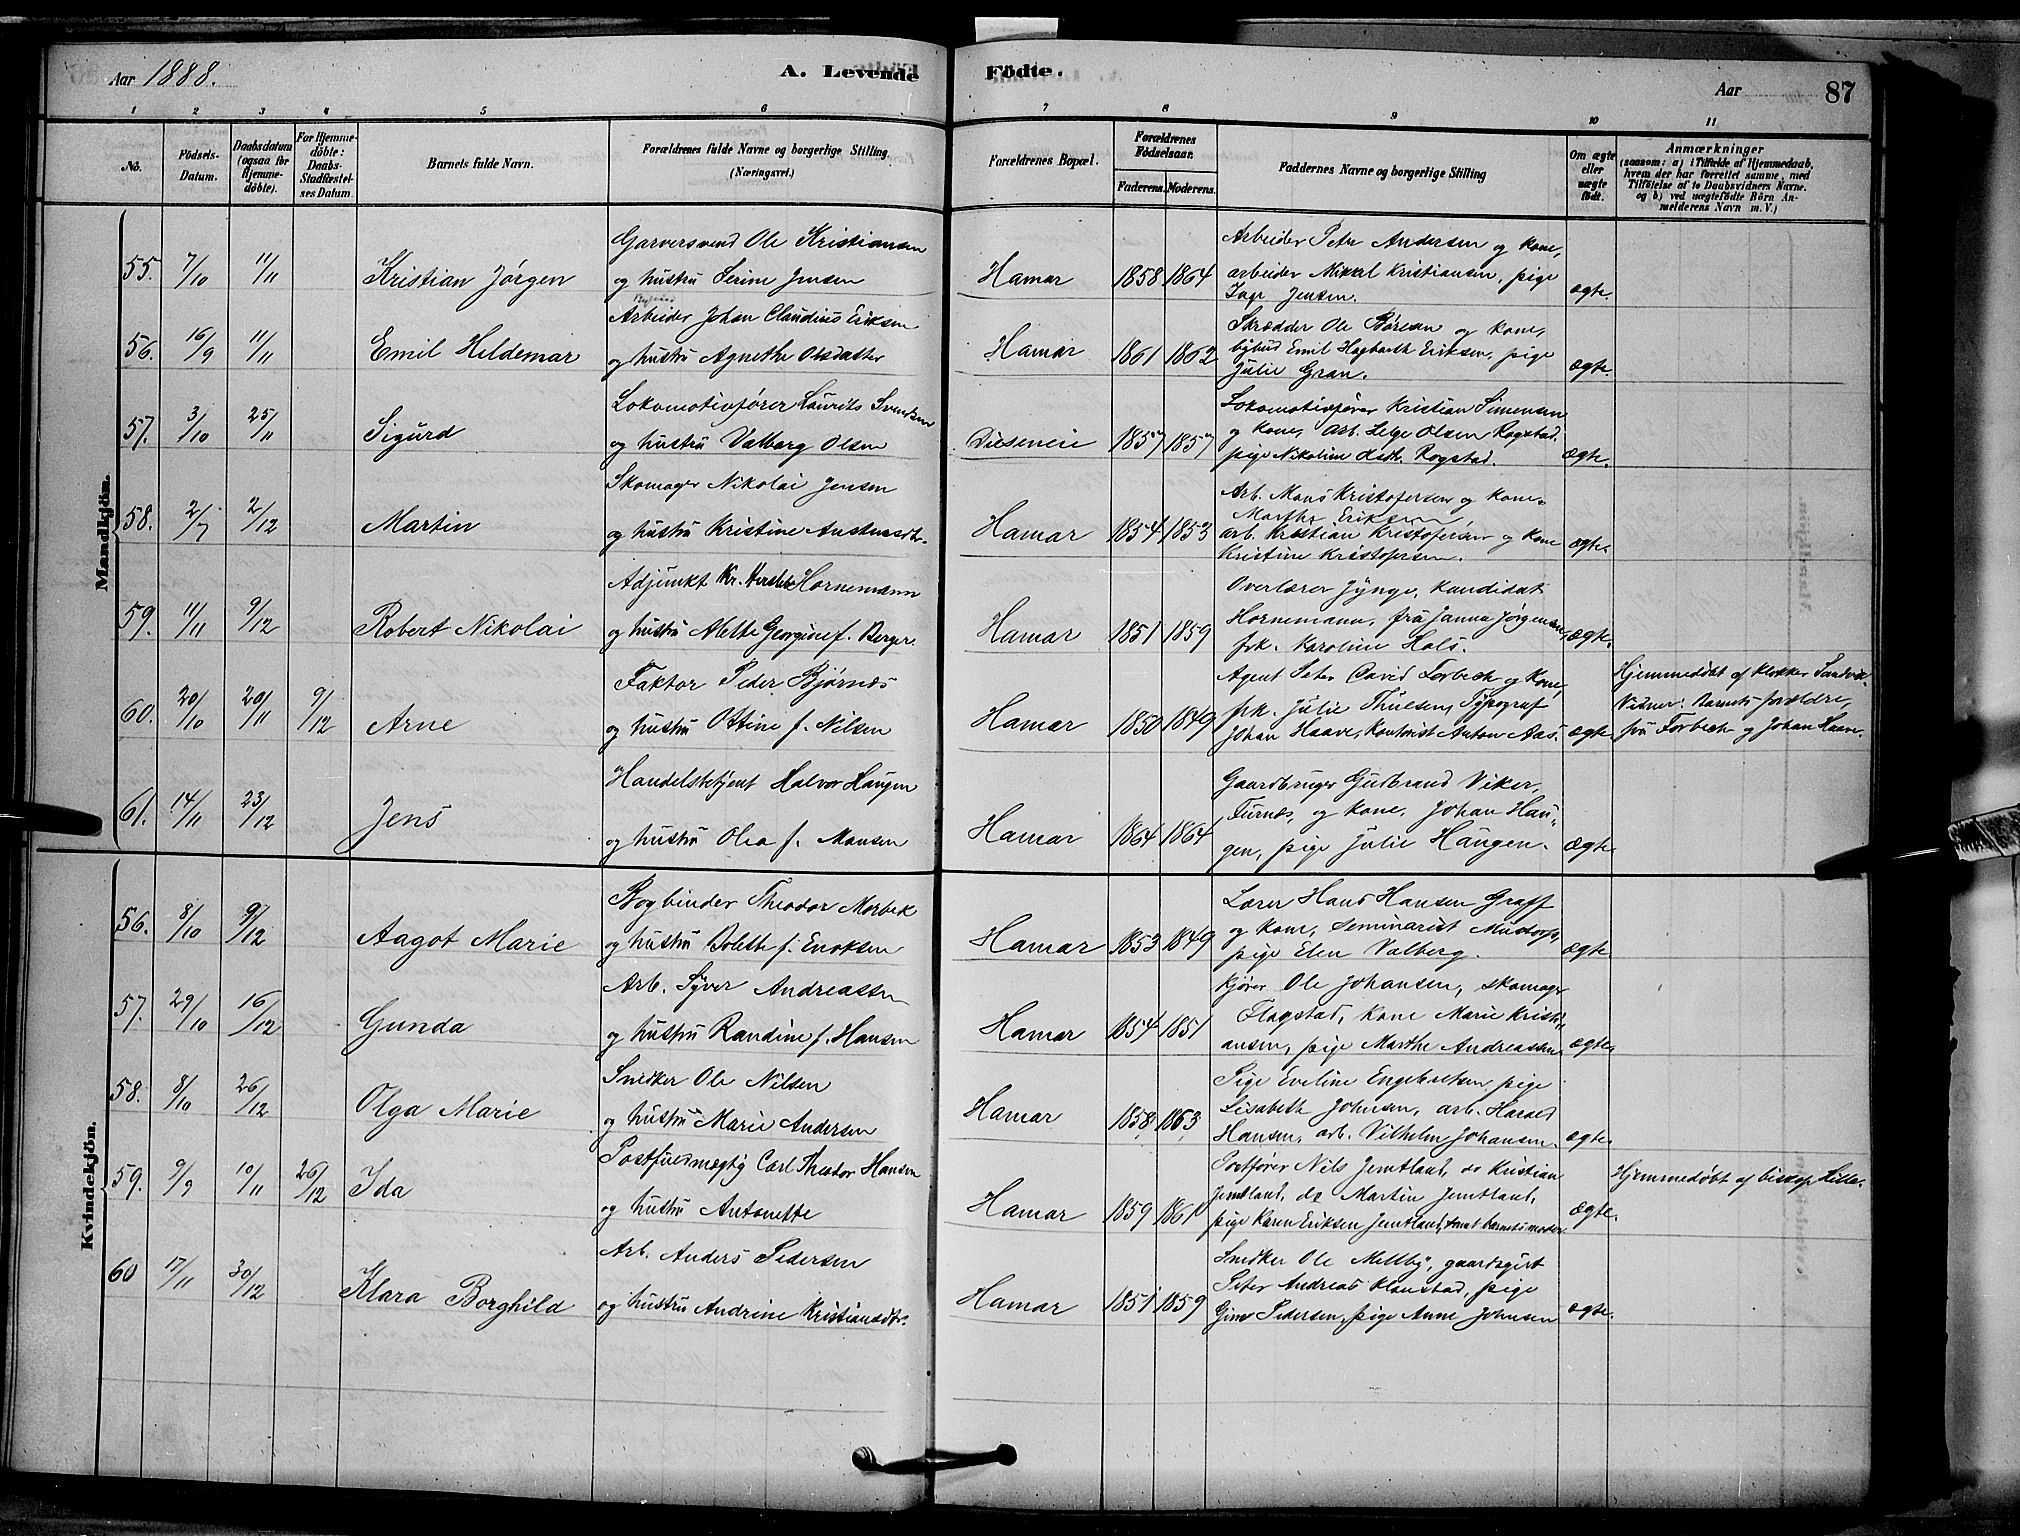 Aar 1888.
A. Levende Fødte.
Aar 87
1 2 3 4 5 6 7 8 9 10 11
No.
Fødsels-Datum.
Daabsdatum (ogsaa for Hjemme-døbte).
For Hjemme-døbte: Daabs-Stadfæstel-ses Datum.
Barnets fulde Navn.
Forældrenes fulde Navne og borgerlige Stilling. (Næringsvei.)
Forældrenes Bopæl.
Forældrenes Fødselsaar.
Faderens. Moderens.
Faddernes Navne og borgerlige Stilling
Om ægte eller uægte født.
Anmærkninger
(saasom: a) i Tilfælde af Hjemmedaab,
hvem der har forrettet samme, med
Tilføielse af to Daabsvidners Navne.
og b) ved uægtefødte Børn An-
melderens Navn m. V.)
Mandkjön.
55. 7/10 11/11 Kristian Jørgen
Garversvend Ole Kristiansen
og hustru Serine Jensen
Hamar 1858 1864
Arbeider Peter Andersen og kone,
arbeider Mikkel Kristiansen, pige
Inga Jensen.
ægte.
56. 16/9 11/11 Emil Hildemar
Arbeider Johan Claudius Eriksen
og hustru Agnethe Olsdatter
Hamar 1861 1862
Skrædder Ole Børesen og kone,
bybud Emil Hagbarth Eriksen, pige
Julie Gran.
ægte.
57. 3/10 25/11 Sigurd
Lokomotivfører Laurits Svendsen
og hustru Valborg Olsen
Diseneie 1857 1857
Lokomotivfører Kristian Simensen
og kone, arb. Helge Olsen Rogstad.
pige Nikoline Osdt. Rogstad.
ægte.
58. 2/7 2/12 Martin
Skomager Nikolai Jensen
og hustru Kristine
Hamar 1854 1853
Arb. Mons Kristofersen og kone
Marthe Eriksen
arb. Kristian Kristofersen og kone
Kristine Kristofersen.
ægte.
59. 11/11 9/12 Robert Nikolai
Adjunkt Kr. Hersleb Hornemann
og hustru Alette Georgine f. Berger.
Hamar 1851 1859
Overlærer Jynge, Kandidat
Hornemann, fru Janna Jørgensen,
frk. Karoline Hals.
ægte.
60. 20/10 20/11 9/12 Arne
Faktor Peder Bjørnæs
og hustru Ottine f. Nilsen
Hamar 1850 1849
Agent Peter David Forbech og kone,
frk. Julie Thulsen, Typograf
Johan Haave, Kontorist Anton Aas.
ægte.
Hjemmedøbt af klokker Sandvik.
Vidner: Barnets forældre,
fru Forbech og Johan Haave.
61. 14/11 23/12 Jens
Handelsbetjent Halvor Haugen
og hustru Olea f. Monsen
Hamar 1864 1864
Gaardbruger Gudbrand Viker,
Furnæs, og kone, Johan Hau-
gen, pige Julie Haugen.
ægte.
Kvindekjön.
56. 8/10 9/12 Aagot Marie
Bogbinder Theodor Morbek
og hustru Bolette f. Enoksen
Hamar 1853 1849
Lærer Hans Hansen Graff
og kone, Seminarist Mustorp,
pige Elen Valberg.
ægte
57. 29/10 16/12 Gunda
Arb. Syver Andreassen
og hustru Randine f. Hansen
Hamar 1854 1851
Kjører Ole Johansen, skomager
Flagstad, kone Marie Kristi-
ansen, pige Marthe Andreassen
ægte.
58. 8/10 26/12 Olga Marie
Snedker Ole Nilsen
og hustru Marie Andersen
Hamar 1858 1863
Pige Eveline Engebretsen, pige
Lisabeth Johnsen, arb. Harald
Hansen, arb. Vilhelm Johansen.
ægte
59. 9/9 10/11 26/12 Ida
Postfuldmægtig Carl Theodor Hansen
og hustru Antonette
Hamar 1859 1861
Postfører Nils Jemtland, do Kristian
Jemtland, do Martin Jemtland,
pige Karen Eriksen Jemtland, samt barnets moder
ægte.
Hjemmedøbt af biskop Hille.
60 17/11 30/12 Klara Borghild
Arb. Anders Pedersen
og hustru Andrine Kristiansdtr.
Hamar 1851 1859
Snedker Ole Mellby, gaardsgut
Peter Andreas Klanstad, pige
Gina Pedersen, pige Anne Johnsen
ægte.